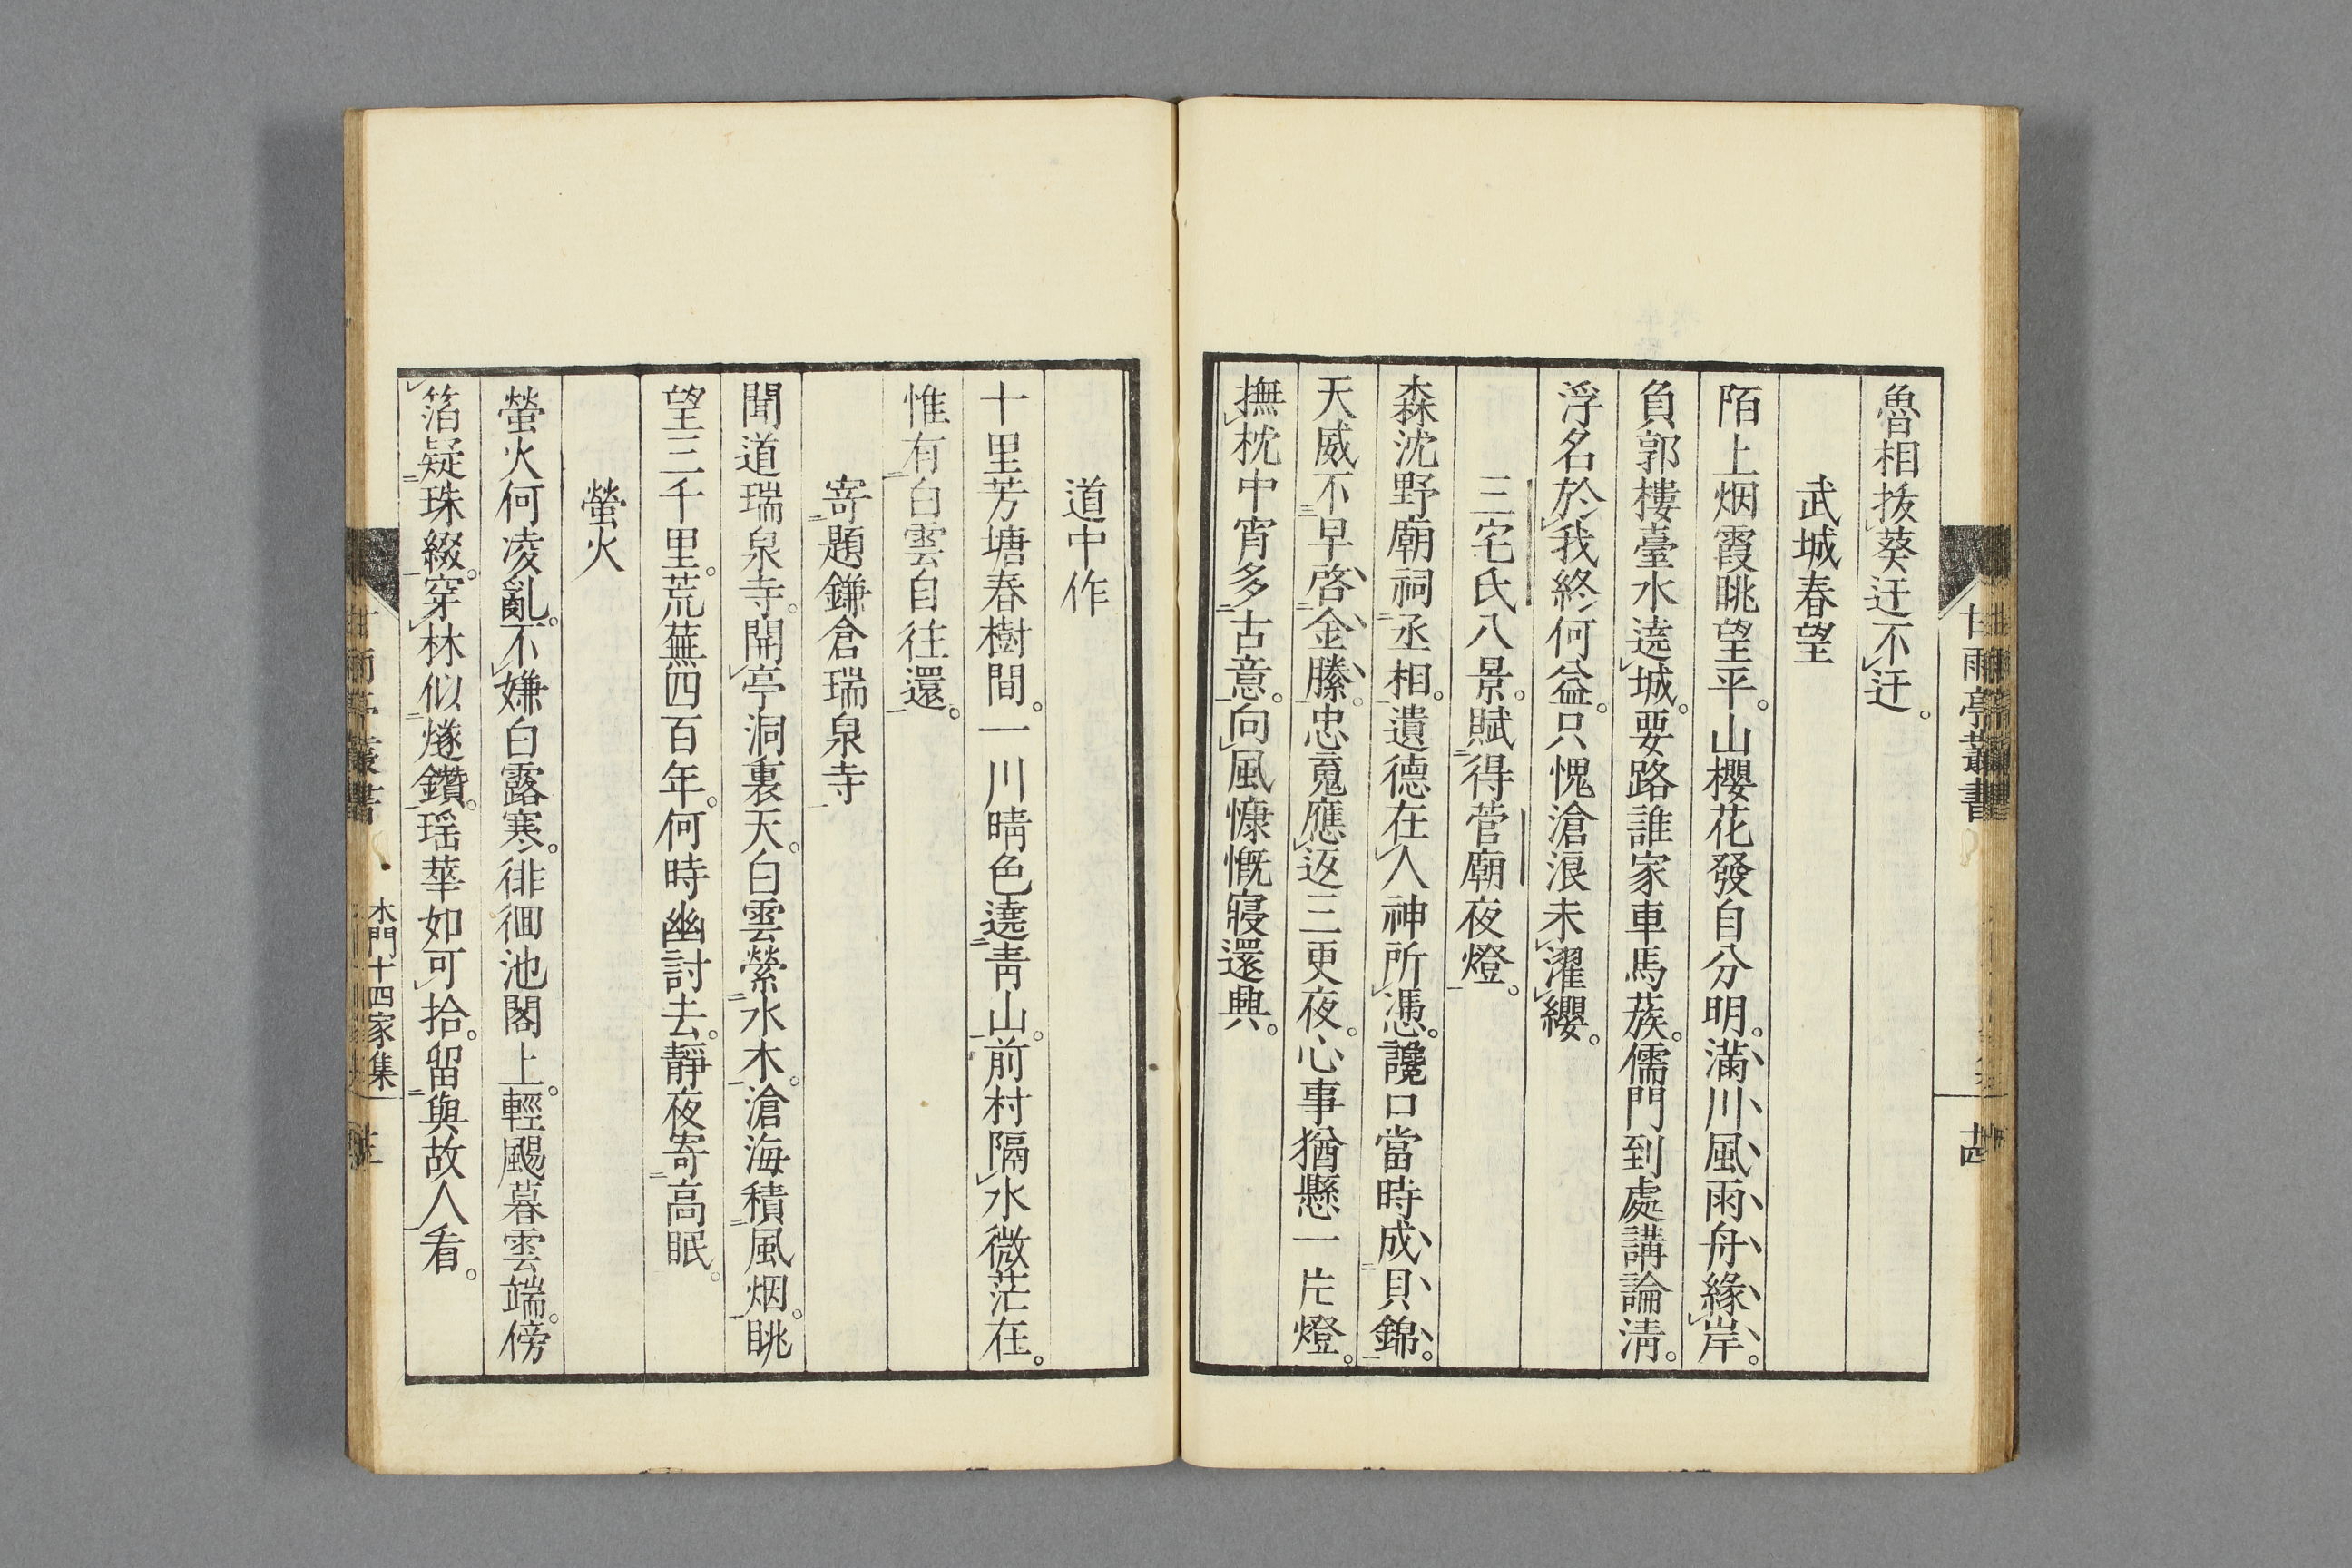 魯相拔葵迂不迂。
武城春望
陌上烟霞眺望平。山櫻花發自分明。滿川風雨舟緣岸。
負郭樓臺水遶城。要路誰家車馬蔟。儒門到處講論淸。
浮名於我終何益。只愧滄浪未濯纓。
三宅氏八景。賦得菅廟夜燈。
森沈野廟祠丞相。遺德在人神所憑。讒口當時成貝錦。
天威不早啓金縢。忠䰟應返三更夜。心事猶懸一片燈。
撫枕中宵多古意。向風慷慨寢還興。
甘雨亭叢書
十四
道中作
十里芳塘春樹間。一川晴色遶靑山。前村隔水微茫在。
惟有白雲自往還。
寄題鎌倉瑞泉寺
聞道瑞泉寺。開亭洞裏天。白雲縈水木。滄海積風烟。眺
望三千里。荒蕪四百年。何時幽討去。靜夜寄高眠。
螢火
螢火何凌亂。不嫌白露寒。徘徊池閣上。輕颺暮雲端。傍
箔疑珠綴。穿林似燧鑽。瑶華如可拾。留與故人看。
甘雨亭叢書
木門十四家集